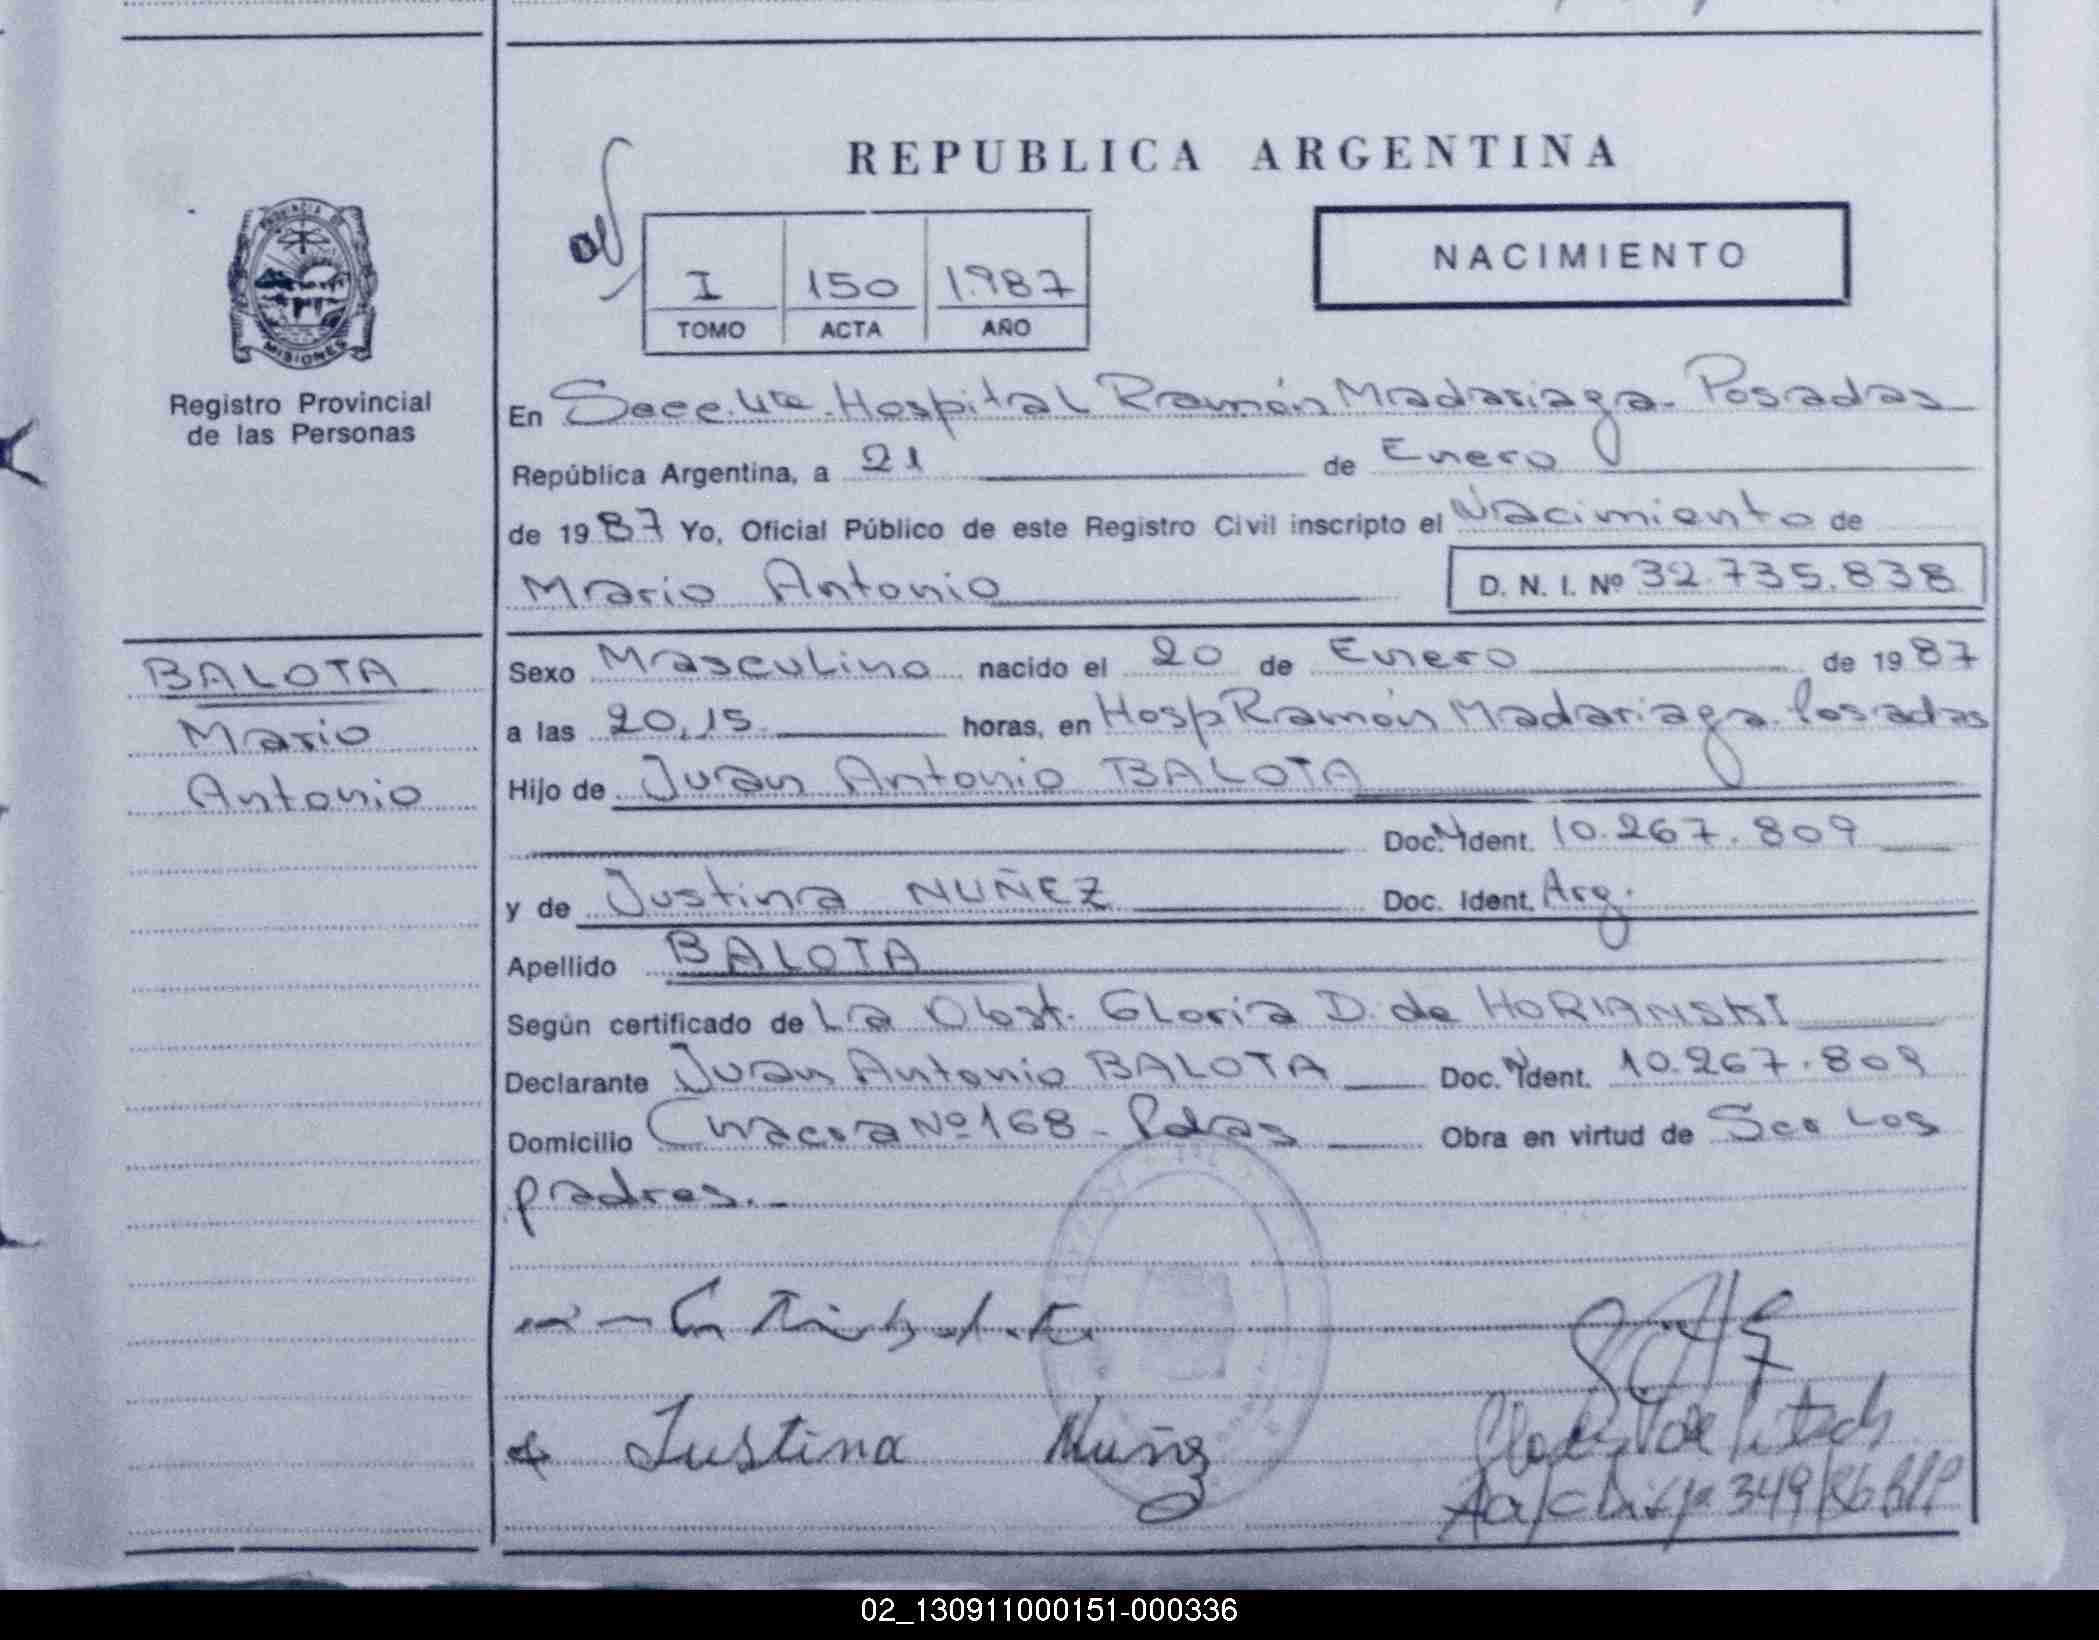 REPUBLICA ARGENTINA
NACIMIENTO
I 150 1.987
TOMO ACTA AÑO
PROVINCIA DE
MISIONES
Registro Provincial
de las Personas
En Secc. 4ta. Hospital Ramón Madariaga - Posadas
República Argentina, a 21 de Enero
de 1987 Yo, Oficial Público de este Registro Civil inscripto el Nacimiento de
Mario Antonio D. N. I. Nº 32.735.838
BALOTA
Mario
Antonio
Sexo Masculino nacido el 20 de Enero de 1987
a las 20,15 horas, en Hosp Ramón Madariaga. Posadas
Hijo de Juan Antonio BALOTA
Doc. Ident. 10.267.809
y de Justina NUÑEZ Doc. Ident. Arg.
Apellido BALOTA
Según certificado de La Obst. Gloria D. de HORIANSKI
Declarante Juan Antonio BALOTA Doc. Ident. 10.267.809
Domicilio Chacra Nº 168 - Pdas Obra en virtud de Ser Los
padres.-
Justina Nuñez
349/86
02_130911000151-000336